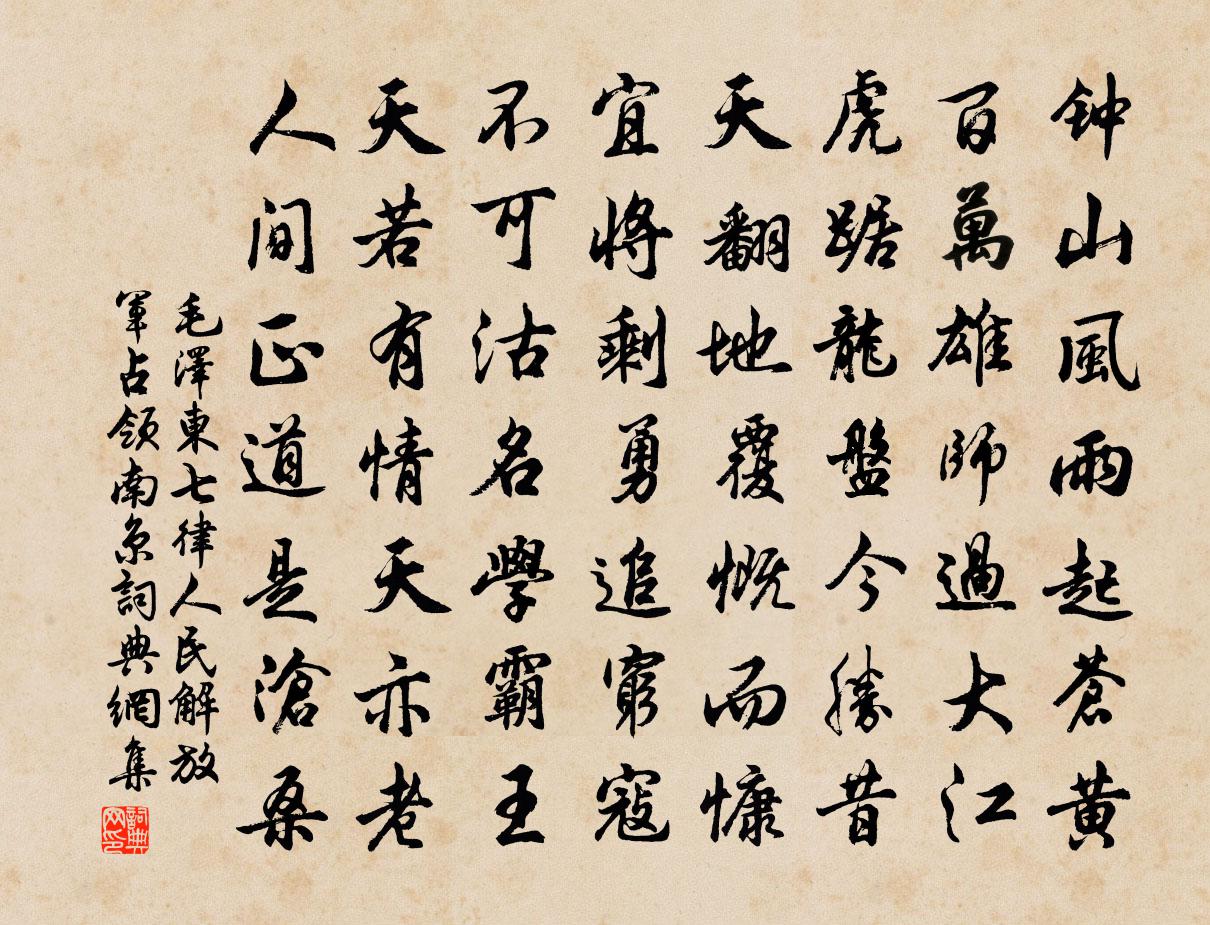 钟山風雨起蒼黃
百萬雄師過大江
虎踞龍盤今勝昔
天翻地覆慨而慷
宜將剩勇追窮寇
不可沽名學霸王
天若有情天亦老
人間正道是滄桑
毛澤東七律人民解放
軍占領南京詞典網集
詞典
网印